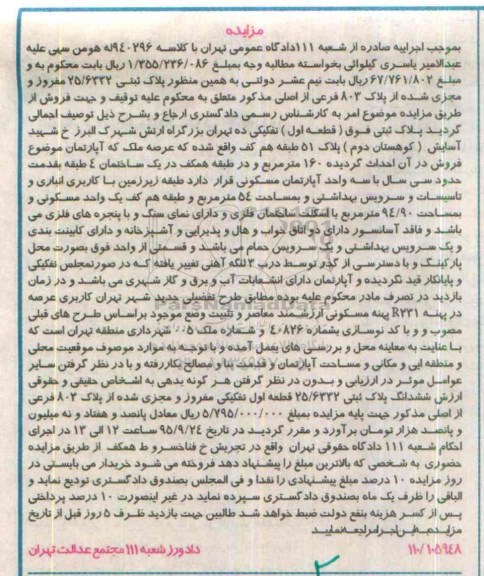 مزایده
بموجب اجراییه صادره از شعبه ۱۱۱دادگاه عمومی تهران با کلاسه ۹٤۰۲۹۶له هومن سهی علیه
عبدالامیر یاسری گیلوائی بخواسته مطالبه وجه بمبلغ ۱/۳۵۵/۲۳۶/۰۸۶ ریال بابت محکوم به و
مبلغ ۶۷/۷۶۱/۸۰۲ ریال بابت نیم عشر دولتی به همین منظور پلاک ثبتی ۲۵/۶۳۳۲ مفروز و
مجزی شده از پلاک ۸۰۳ فرعی از اصلی مذکور متعلق به محکوم علیه توقیف و جهت فروش از
طریق مزایده موضوع امر به کارشناس رسمی دادگستری ارجاع و بشرح ذیل توصیف اجمالی
گردید پلاک ثبتی فوق ( قطعه اول ) تفکیکی ده تهران بزرگراه ارتش شهرک البرز خ شهید
آسایش ( کوهستان دوم ) پلاک ۵۱ طبقه هم کف واقع شده که عرصه ملک که آپارتمان موضوع
فروش در آن احداث گردیده ۱۶۰ مترمربع و در طبقه همکف در یک ساختمان ٤ طبقه بقدمت
حدود سی سال با سه واحد آپارتمان مسکونی قرار دارد طبقه زیرزمین با کاربری انباری و
تاسیسات و سرویس بهداشتی و بمساحت ۵٤ مترمربع و طبقه هم کف یک واحد مسکونی و
بمساحت ۹٤/۹۰ مترمربع با اسکلت ساختمان فلزی و دارای نمای سنگ و با پنجره های فلزی می
باشد و فاقد آسانسور دارای دو اتاق خواب و هال و پذیرایی و آشپزخانه و دارای کابینت بندی
و یک سرویس بهداشتی و یک سرویس حمام می باشد و قسمتی از واحد فوق بصورت محل
پارکینگ و با دسترسی از گذر توسط درب ۳لنگه آهنی تغییر یافته که در صورتمجلس تفکیکی
و پایانکار قید نگردیده و آپارتمان دارای انشعابات آب و برق و گاز شهری می باشد و در زمان
بازدید در تصرف مادر محکوم علیه بوده مطابق طرح تفضیلی جدید شهر تهران کاربری عرصه
در پهنه R۲۳۱ پهنه مسکونی ارزشمند معاصر و تثبیت وضع موجود براساس طرح های قبلی
مصوب و و با کد نوسازی بشماره ٤۰۸۲۶ و شماره ملک ۰۰۵ شهرداری منطقه تهران است که
با عنایت به معاینه محل و بررسی های بعمل آمده و با توجه به موارد موصوف موقعیت محلی
و منطقه ایی و مکانی و مساحت آپارتمان و قدمت بنا و مصالح بکاررفته و با در نظر گرفتن سایر
عوامل موثر در ارزیابی و بدون در نظر گرفتن هر گونه بدهی به اشخاص حقیقی و حقوقی
ارزش ششدانگ پلاک ثبتی ۲۵/۶۳۳۲ قطعه اول تفکیکی مفروز و مجزی شده از پلاک ۸۰۳ فرعی
از اصلی مذکور جهت پایه مزایده بمبلغ ۵/۷۹۵/۰۰۰/۰۰۰ ریال معادل پانصد و هفتاد و نه میلیون
و پانصد هزار تومان برآورد و مقرر گردید در تاریخ ۹۵/۹/۲٤ ساعت 12 الی 13 در اجرای
احکام شعبه ۱۱۱ دادگاه حقوقی تهران واقع در تجریش خ فناخسرو ط همکف از طریق مزایده
حضوری به شخصی که بالاترین مبلغ را پیشنهاد دهد فروخته می شود خریدار می بایستی در
روز مزایده ۱۰ درصد مبلغ پیشنهادی را نقدا و فی المجلس بصندوق دادگستری تودیع نماید و
الباقی را ظرف یک ماه بصندوق دادگستری سپرده نماید در غیر اینصورت ۱۰ درصد پرداختی
پس از کسر هزینه بنفع دولت ضبط خواهد شد طالبین جهت بازدید ظرف ۵ روز قبل از تاریخ
مزایده به این اجرا مراجعه نمایید
۱۱۰/۱۰۵۹٤۸ دادورز شعبه ۱۱۱ مجتمع عدالت تهران